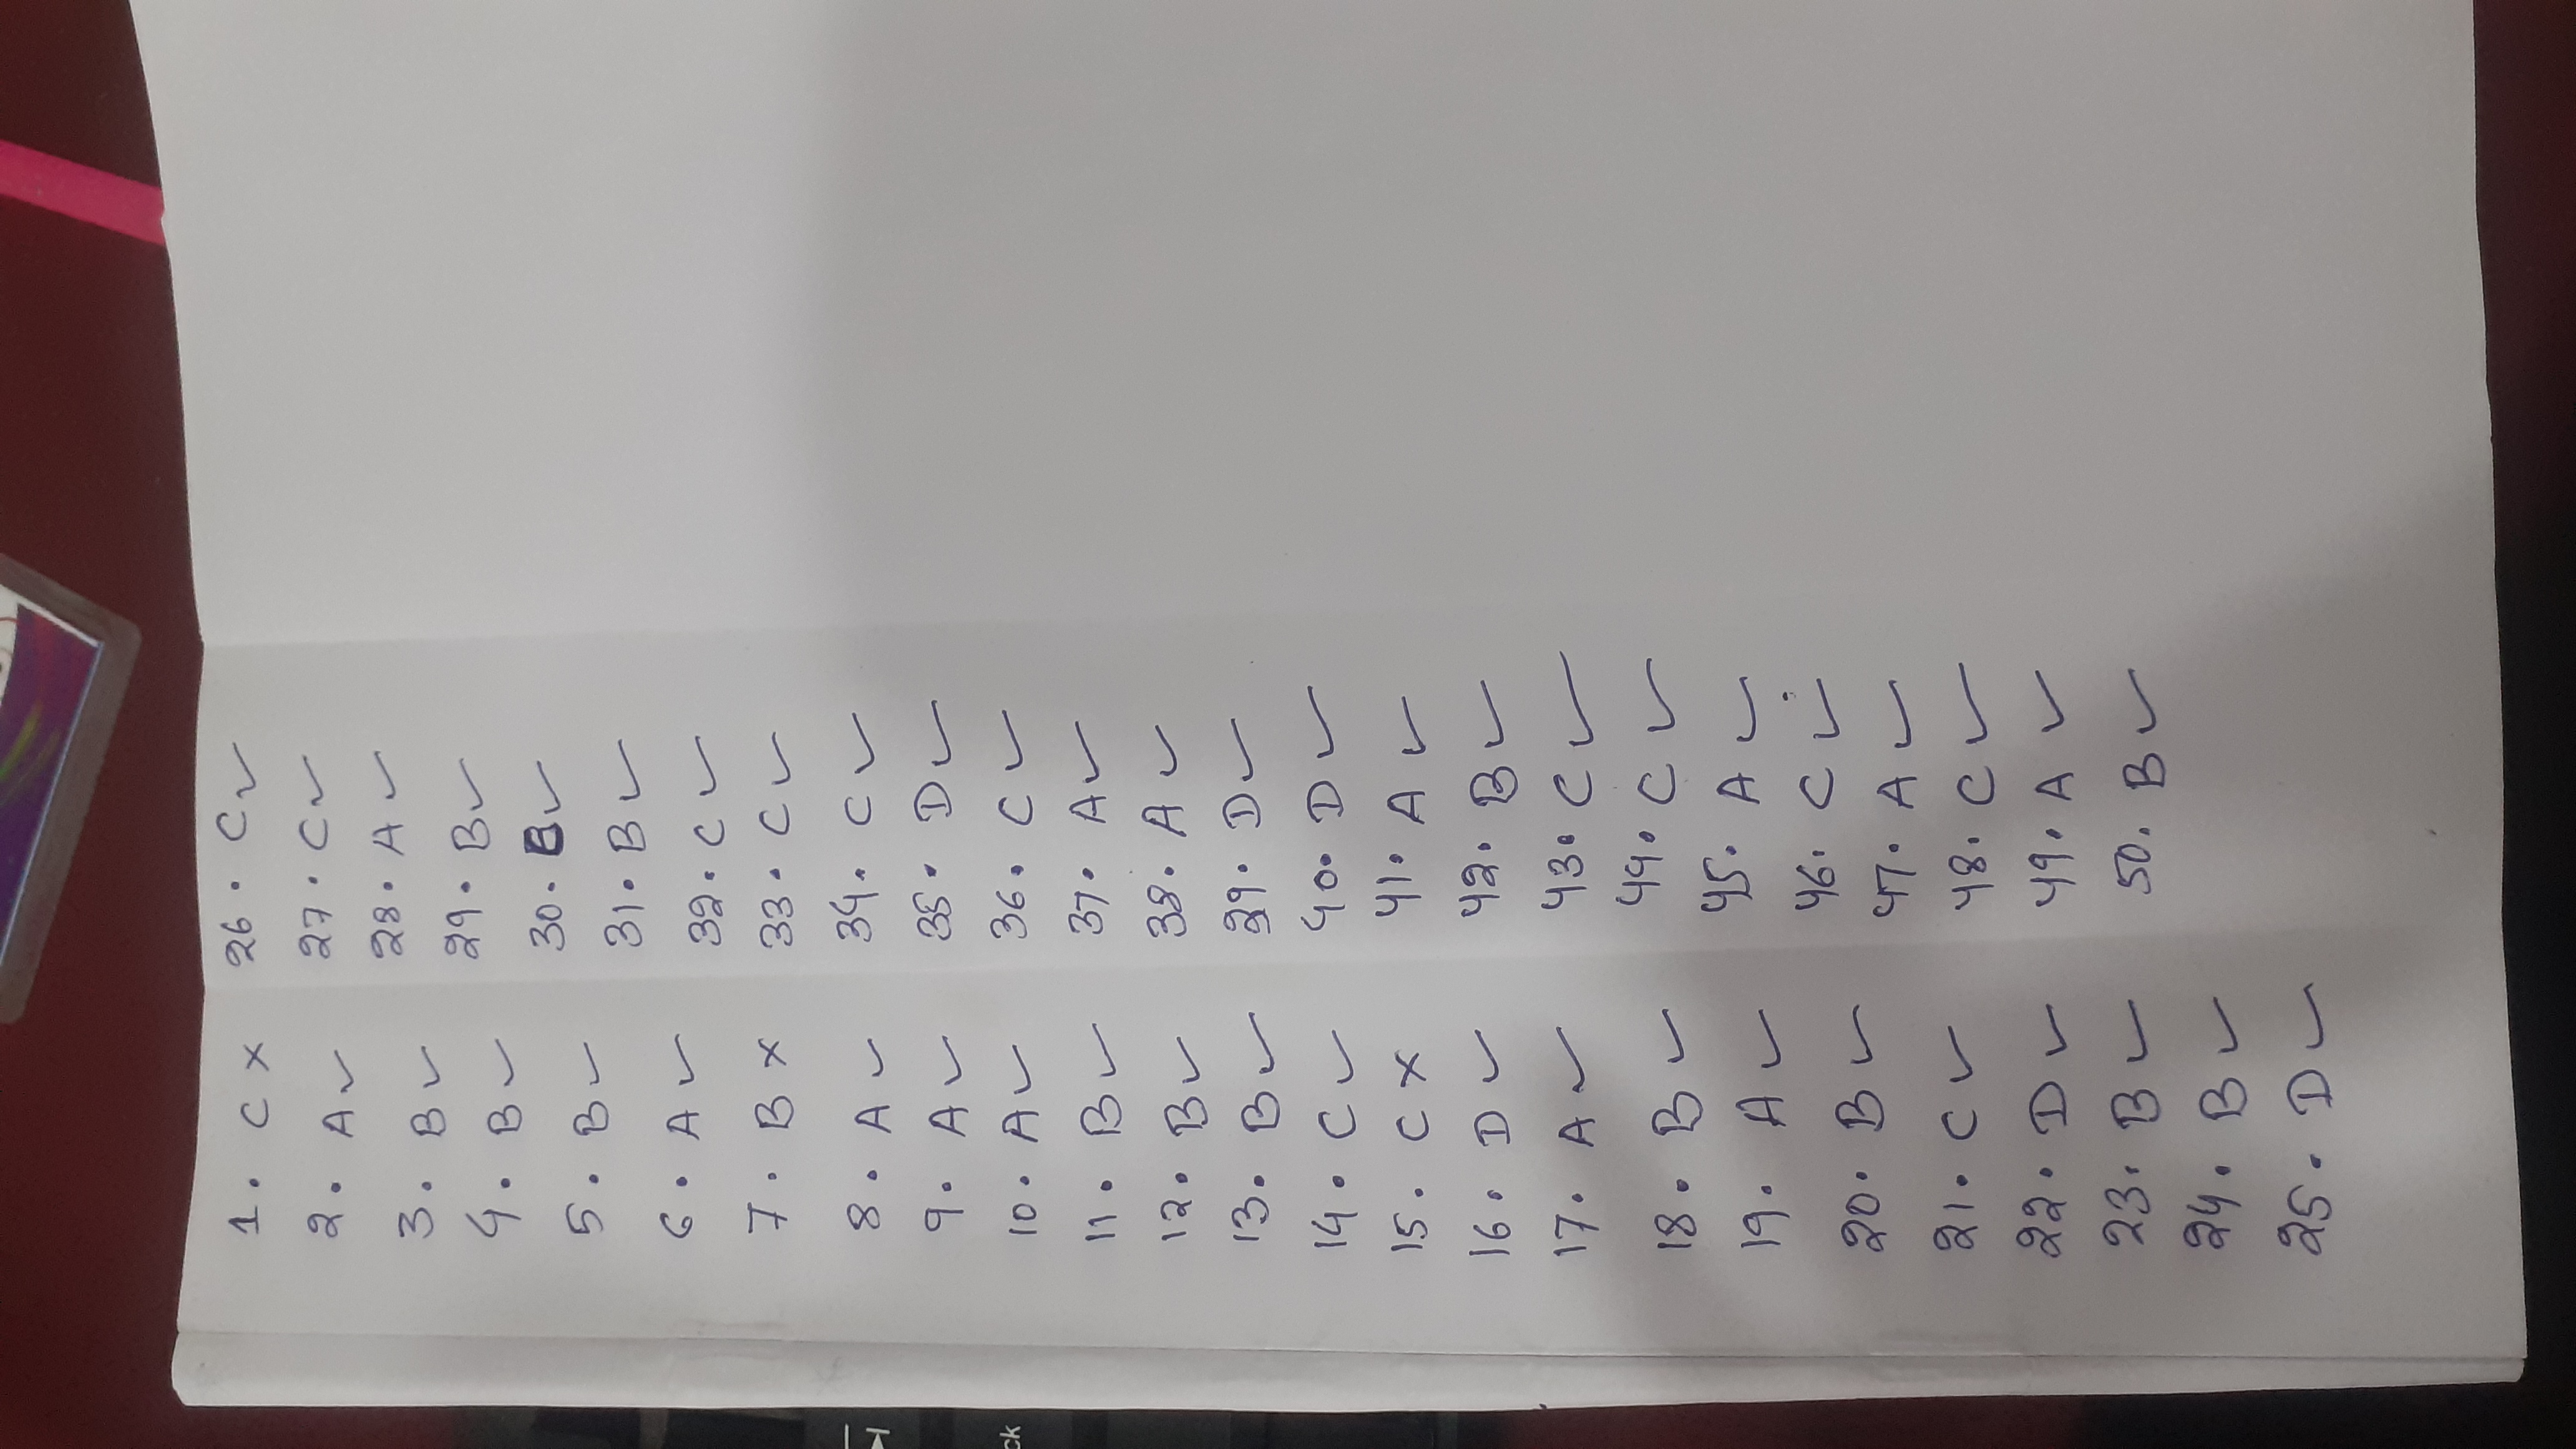 1. C x
2. A ✓
3. B ✓
4. B ✓
5. B ✓
6. A ✓
7. B x
8. A ✓
9. A ✓
10. A ✓
11. B ✓
12. B ✓
13. B ✓
14. C ✓
15. C x
16. D ✓
17. A ✓
18. B ✓
19. A ✓
20. B ✓
21. C ✓
22. D ✓
23. B ✓
24. B ✓
25. D ✓
26. C ✓
27. C ✓
28. A ✓
29. B ✓
30. B ✓
31. B ✓
32. C ✓
33. C ✓
34. C ✓
35. D ✓
36. C ✓
37. A ✓
38. A ✓
39. D ✓
40. D ✓
41. A ✓
42. B ✓
43. C ✓
44. C ✓
45. A ✓
46. C ✓
47. A ✓
48. C ✓
49. A ✓
50. B ✓
ck